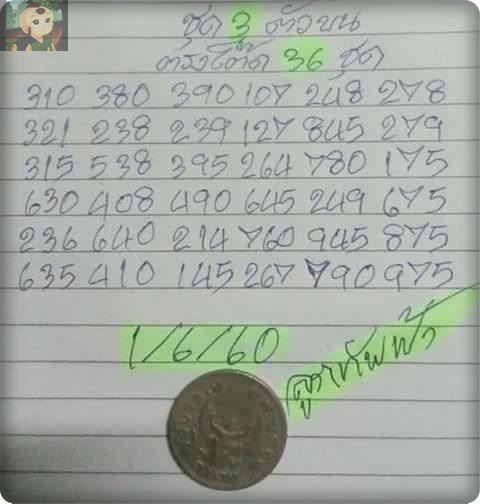 ชุด 3 ตัวบน
ตรงโต๊ด 36 ชุด
310 380 390 107 248 278
321 238 239 127 845 279
315 538 395 264 780 175
630 408 490 645 249 675
236 640 214 760 945 875
635 410 145 267 790 975
1/6/60